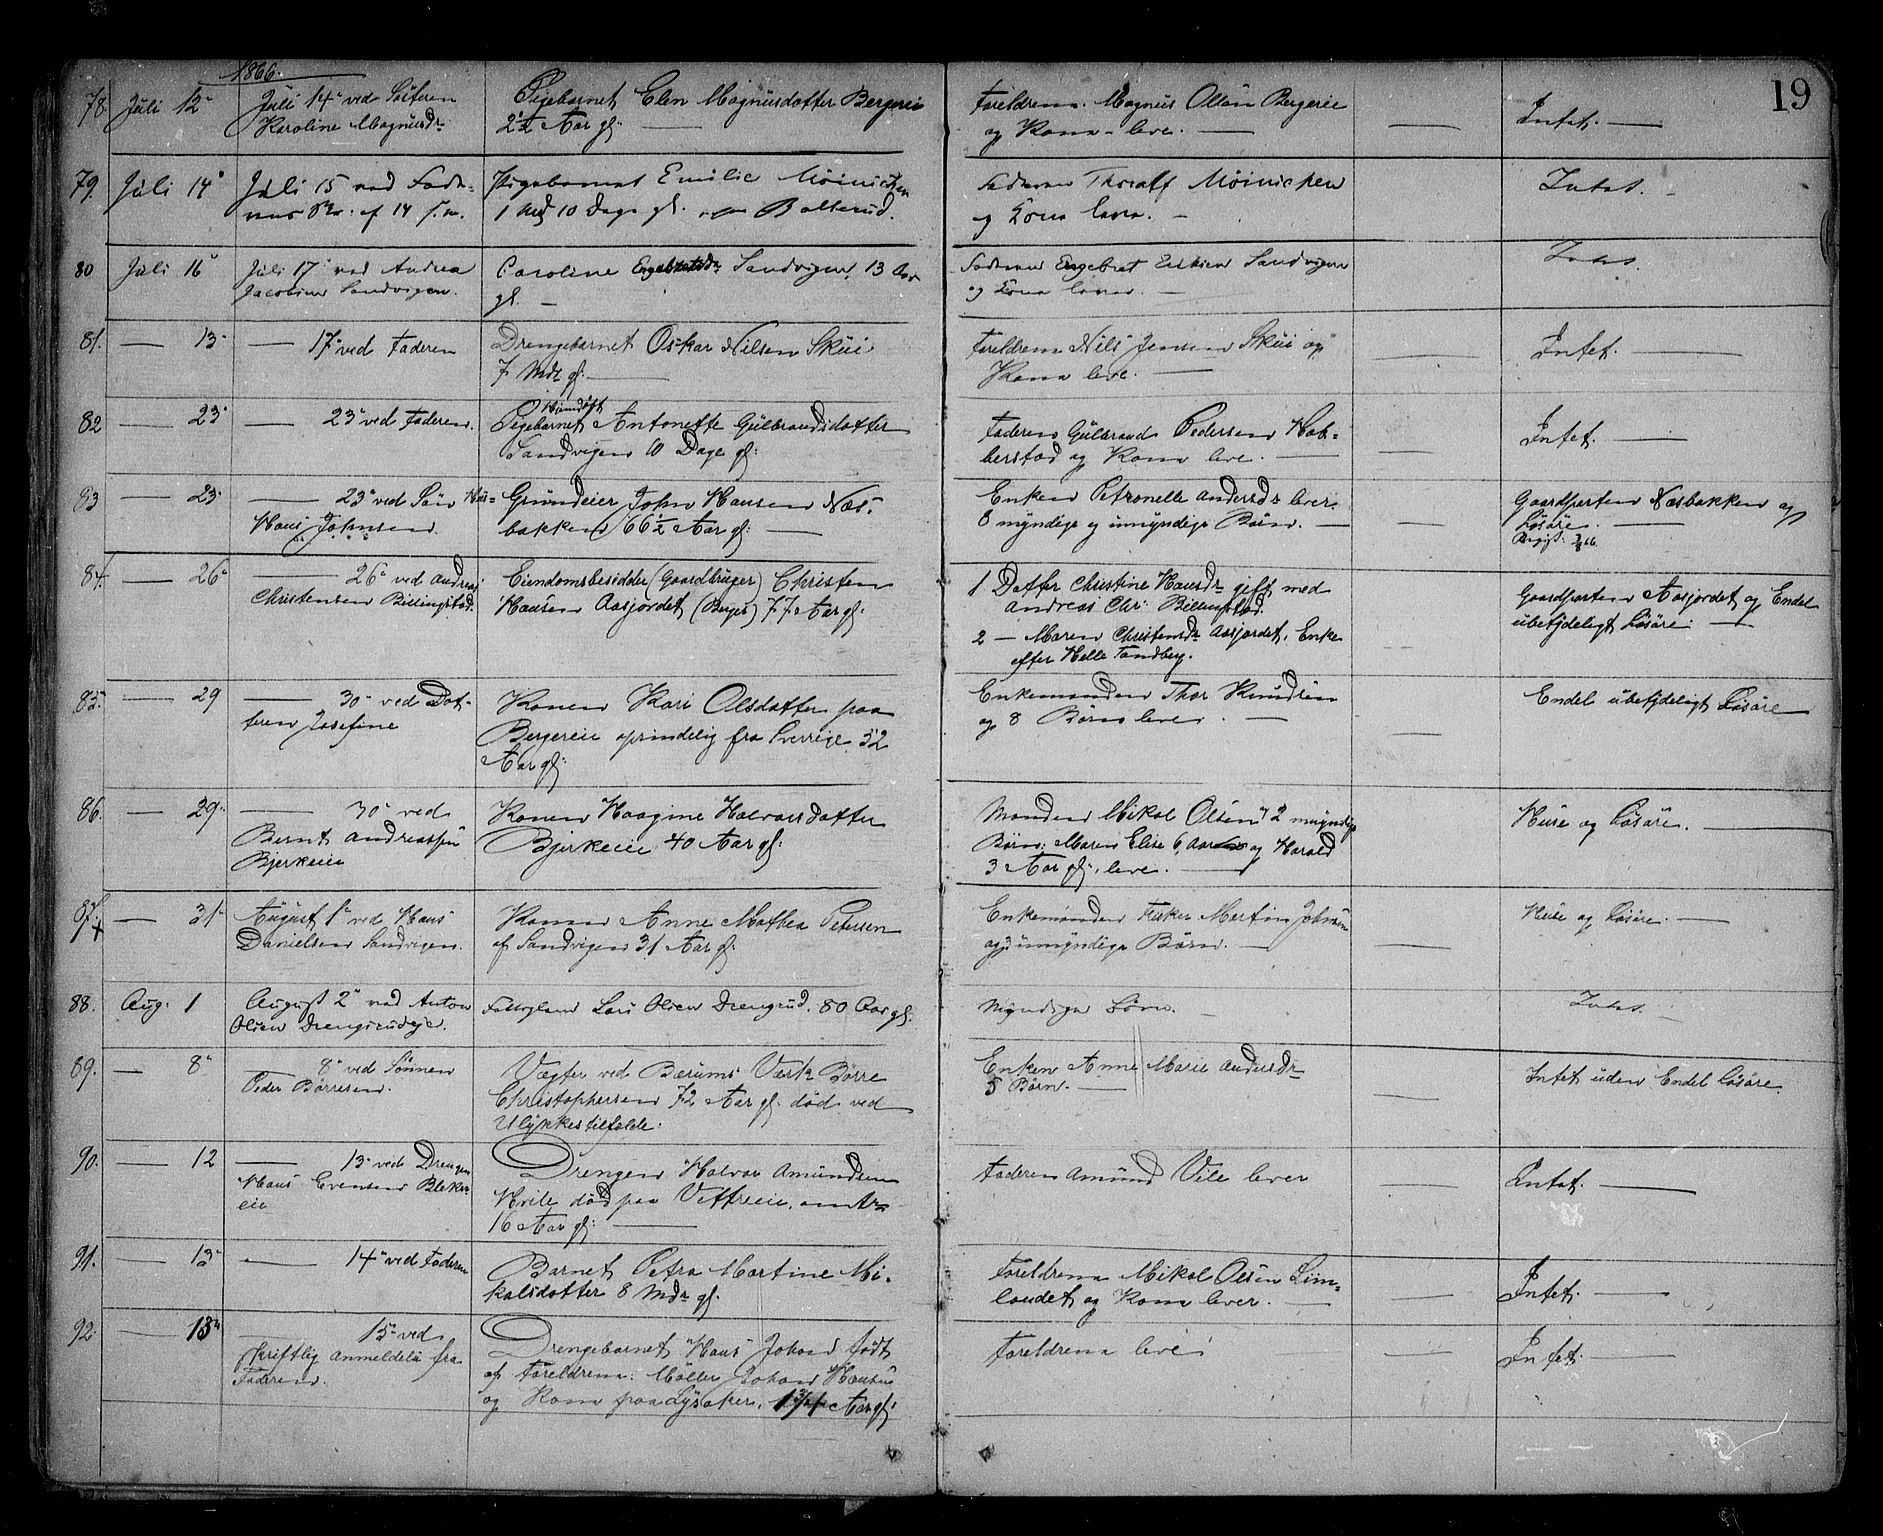 1866.
19
78. Juli 12 Juli 14 ved Søsteren Pigebarnet Elen Magnusdatter Bergeeie Foreldrene Magnus Olsen Bergeeie Intet.
Karoline Magnusdr 2½ Aar gl: og Kone leve.
79. Juli 14 Juli 15 ved Fade- Pigebarnet Emilie Møinichen Faderen Thoralf Møinichen Intet.
rens Br: af 14 s.m. 1 Md 10 Dage gl. Ballerud. og Kone lever.
80 Juli 16 Juli 17 ved Andrea Caroline Engebretsdr Sandvigen 13 Aar Faderen Engebret Eriksen Sandvigen Intet.
Jacobsen Sandvigen. gl. og Kone lever.
81. 13 17 ved Faderen Drengebarnet Oskar Nilsen Skui Foreldrene Nils Jensen Skui og Intet.
7 Mdr gl: Kone leve.
82 23 23 ved Faderen. Pigebarnet Hiemdøbt Antonette Gulbrandsdatter Faderen Gulbrand Pedersen Hob- Intet.
Sandvigen 10 Dage gl: berstad og Kone leve.
83 23 23 ved Søn Grundeier John Hansen Næs- Enken Petronelle Andersdr lever Gaardparten Næsbakken og
Hans Johnsen. bakken 66½ Aar gl: 8 myndige og umyndige Børn. Løsøre.
84. 26 26 ved Andreas Eiendomsbesidder (Gaardbruger) Christen 1 Datter Christine Hansdr gift med Gaardparten Aasjordet og Endel
Christensen Billingstad. Hansen Aasjordet (Berger) 77 Aar gl: Andreas Chr: Billingstad. ubetydeligt Løsøre.
2 Maren Christensdr Aasjordet, Enke
efter Helle Tandberg.
85. 29 30 ved Dat- Konen Kari Olsdatter paa Enkemanden Thor Knudsen Endel ubetydeligt Løsøre
teren Josefine Bergereie oprindelig fra Sverrige 52 og 8 Børn lever.
Aar gl:
86. 29. 30 ved Konen Haagine Halvorsdatter Manden Mikal Olsen, 2 umyndige Huse og Løsøre.
Bernt Andreassen Bjerkeeie 40 Aar gl: Børn: Maren Elise 6 Aar og Harald
Bjerkeeie 3 Aar gl. leve.
87. 31 August 1 ved Hans Konen Anne Mathea Petersen Enkemanden Fisker Martin Johnsen Huse og Løsøre.
Danielsen Sandvigen. af Sandvigen 31 Aar gl: og 3 umyndige Børn.
88. Aug: 1 August 2 ved Anton Fattiglem Lars Olsen Drengsrud. 80 Aar gl. Myndige Børn. Intet.
Olsen Drengsrudeje.
89. 8 8 ved Sønnen Vægter ved Bærums Værk Børre Enken Anne Marie Andersdr Intet uden Endel Løsøre
Peder Børresen. Christophersen 72 Aar gl: død ved 5 Børn.
Ulykkestilfælde.
90. 12 13 ved Drengen Drengen Halvor Amundsen Faderen Amund Vile lever Intet.
Hans Evensen Bleker- Hvile død paa Vettreeie, omtr
eie 16 Aar gl:
91. 13 14 ved Faderen Barnet Petra Martine Mi- Foreldrene Mikal Olsen Lim- Intet.
kalsdatter 8 Mdr gl. landet og Kone lever.
92. 13 15 ved Drengebarnet Hans Johan født Foreldrene leve Intet.
skriftlig Anmeldelse fra af Foreldrene: Møller Johan Hansen
Faderen. og Kone paa Lysaker. Aar gl: